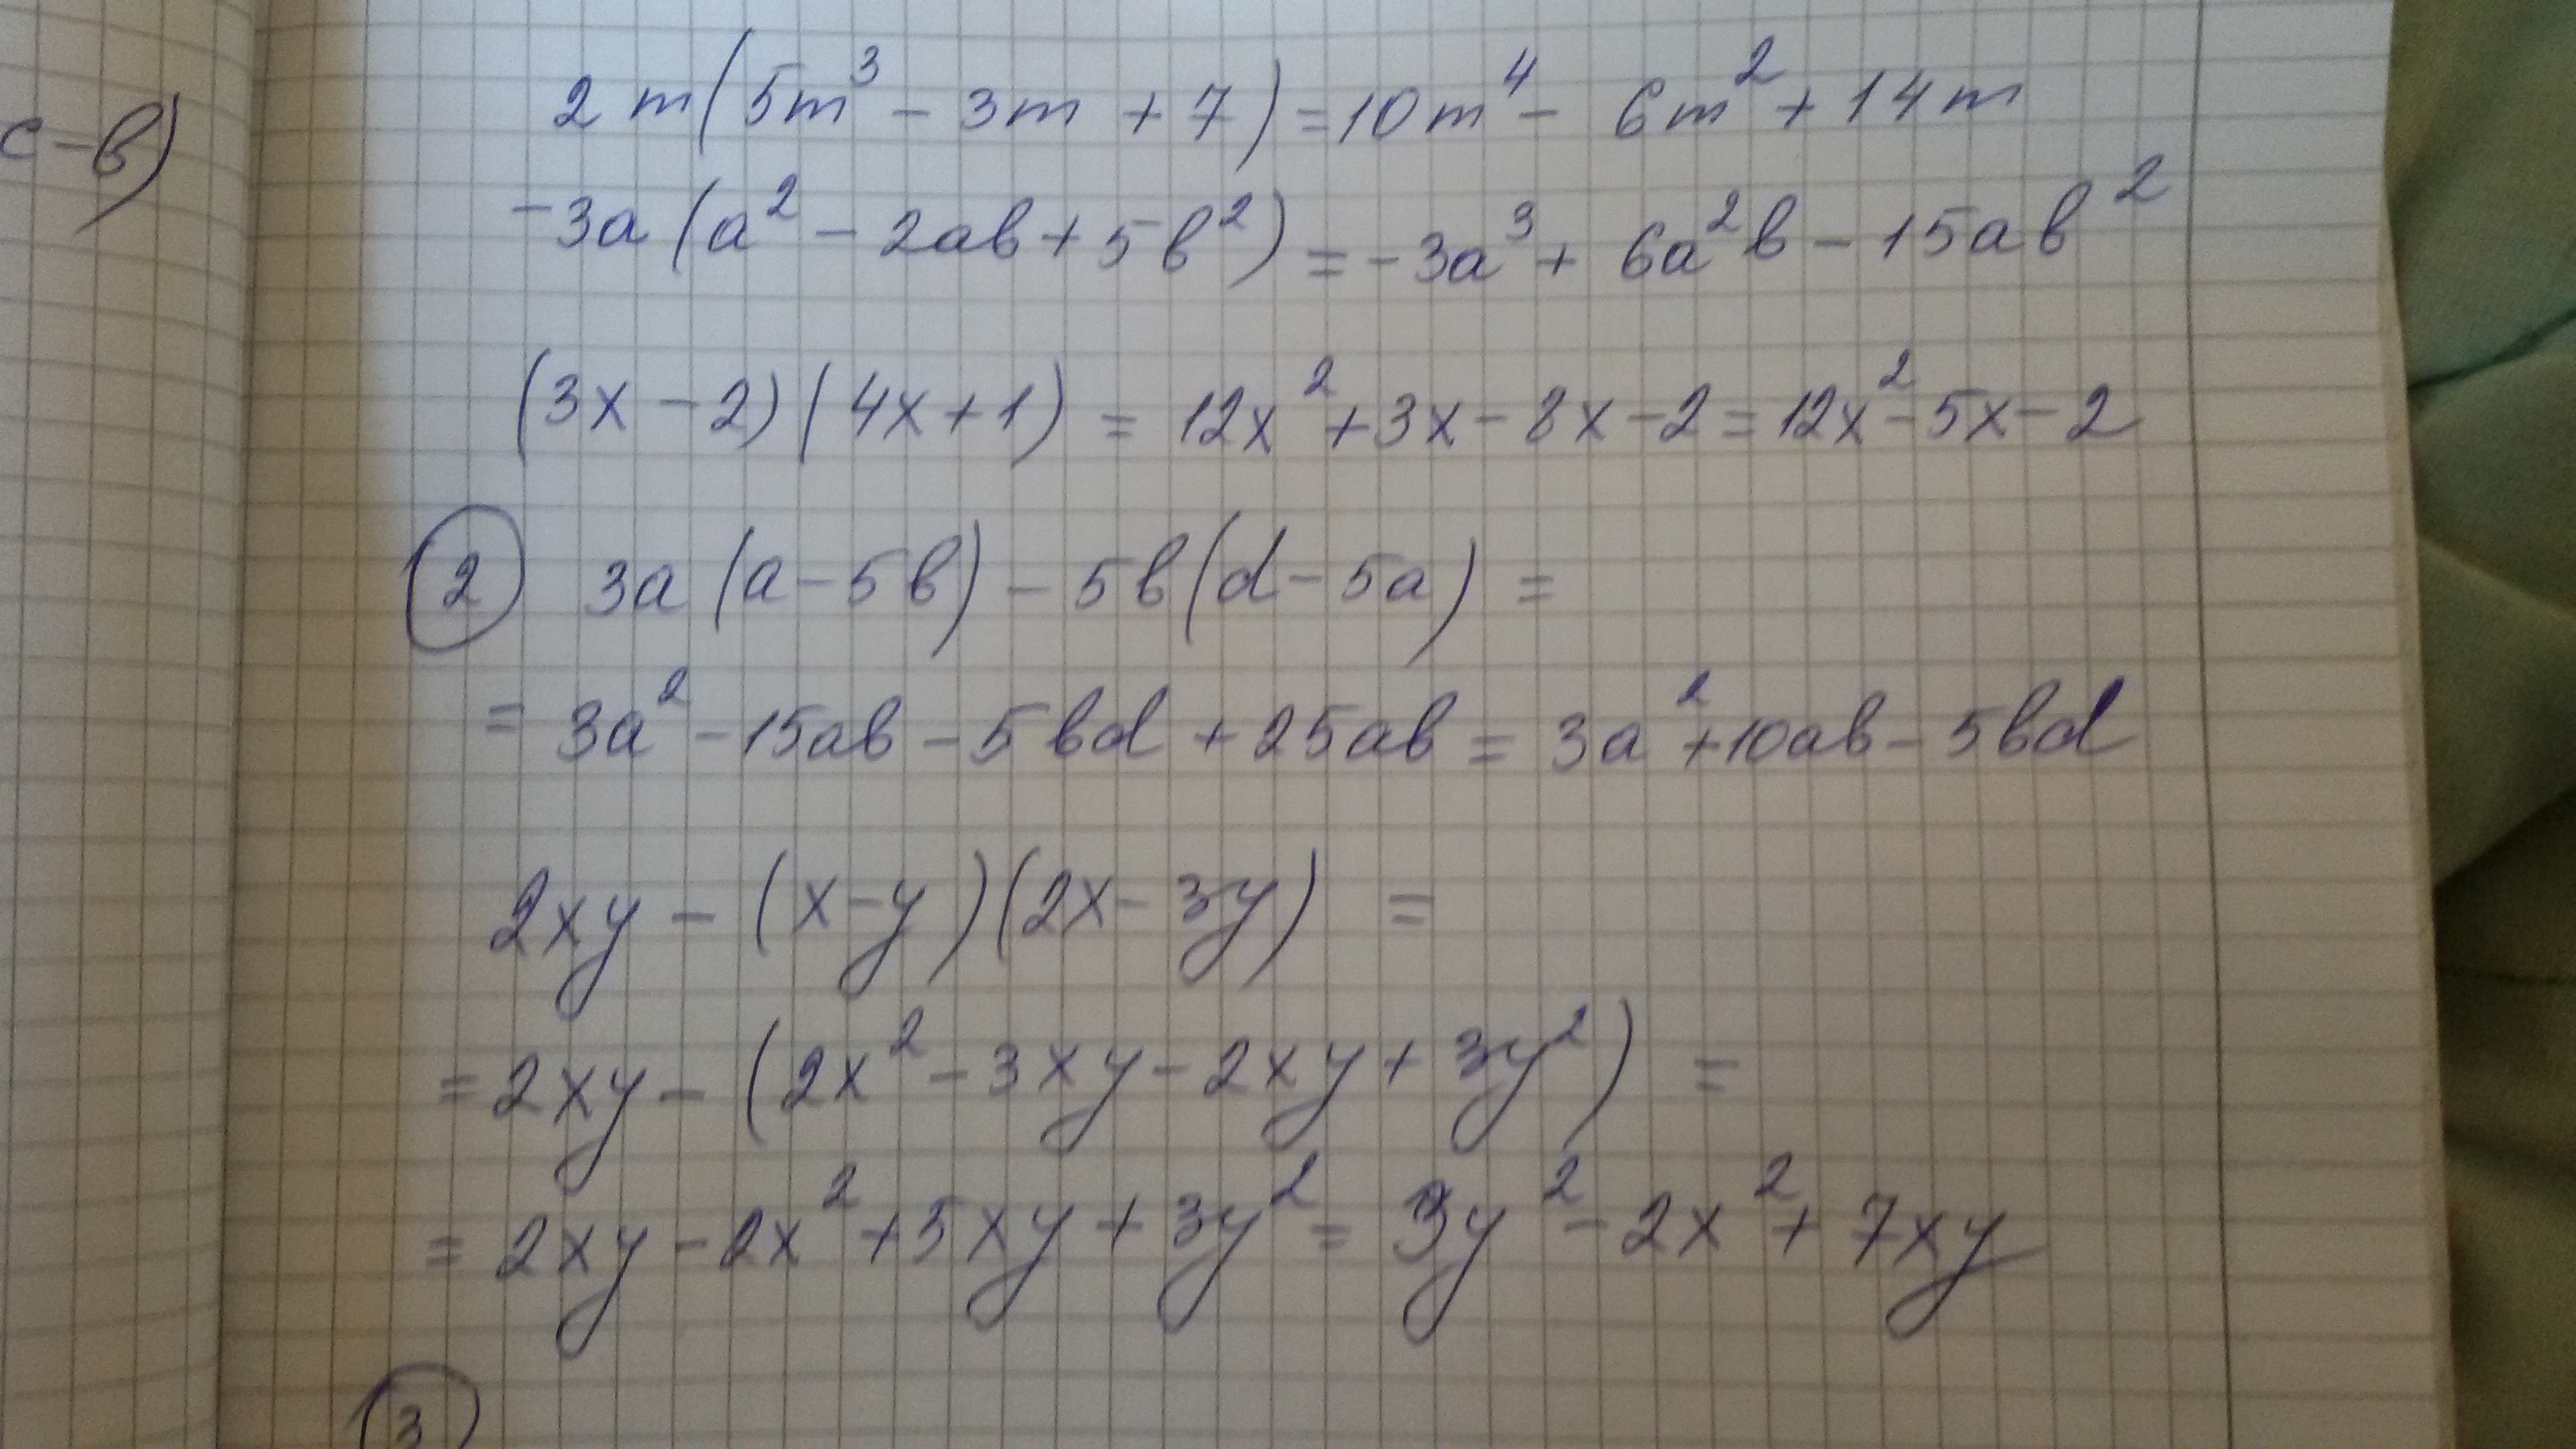 с-в)
2m(5m³ - 3m + 7) = 10m⁴ - 6m² + 14m
-3a(a² - 2ab + 5b²) = -3a³ + 6a²b - 15ab²
(3x - 2)(4x + 1) = 12x² + 3x - 8x - 2 = 12x² - 5x - 2
2 3a(a - 5b) - 5b(d - 5a) =
= 3a² - 15ab - 5bd + 25ab = 3a² + 10ab - 5bd
2xy - (x - y)(2x - 3y) =
= 2xy - (2x² - 3xy - 2xy + 3y²) =
= 2xy - 2x² + 5xy + 3y² = 3y² - 2x² + 7xy
3